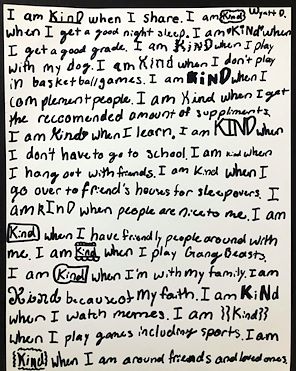 I am KinD when I share. I am Kind Wyatt D.
when I get a good night sleep. I am *KIND* when
I get a good grade. I am KiND when I play
with my dog. I am Kind when I don't play
in basketball games. I am KiND when I
complement people. I am Kind when I get
the reccomended amount of suppliments.
I am Kind when I learn. I am KIND when
I don't have to go to school. I am kind when
I hang out with friends. I am Kind when I
go over to friend's houses for sleepovers. I
am KInD when people are nice to me. I am
Kind when I have friendly people around with
me. I am Kind when I play Gang Beasts.
I am Kind when I'm with my family. I am
Kind because of my faith. I am KiNd
when I watch memes. I am }}Kind{{
when I play games including sports. I am
{Kind} when I am around friends and loved ones.